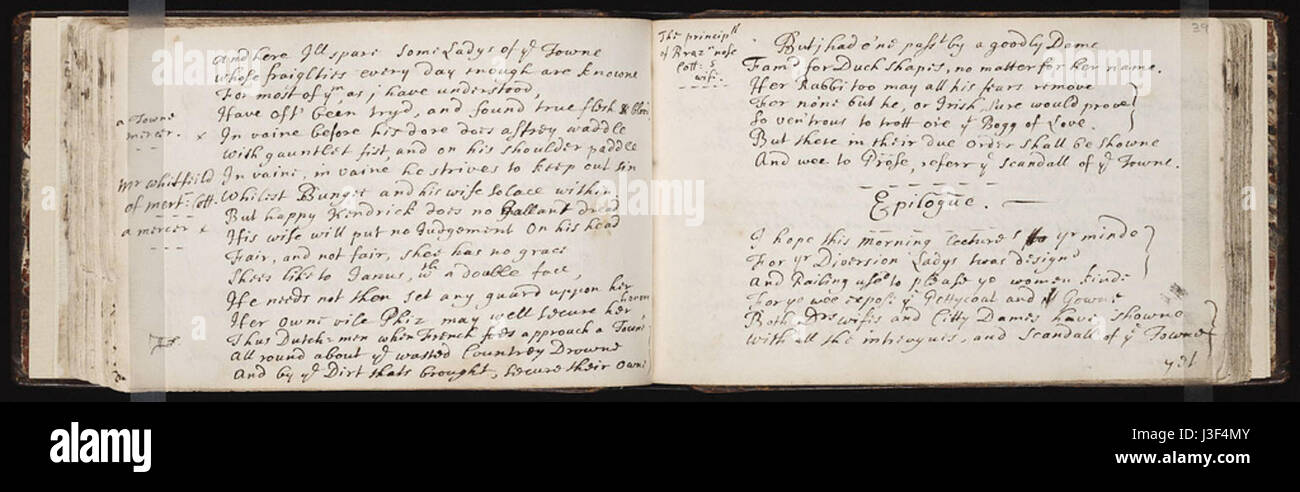 And here I'll spare some Ladys of yᵉ Towne
whose fraiglties every day enough are knowne
For most of yᵐ, as j have understood,
Have oft been try'd, and found true flesh & blood
a Towne
mercer. x
In vaine before his dore does astrey waddle
With gauntlet fist, and on his shoulder paddle
Mr Whitfeild
of mert: Coll.
In vaine, in vaine he strives to keep out sin
Whilest Bungee and his wife solace within
a mercer x
But happy Kendrick does no Gallant dread
His wife will put no Judgement on his head
Fair, and not fair, shee has no grace
Shees like to Janus, wᵗʰ a double face,
He needs not then set any guard uppon her
Her owne vile Phiz may well secure her honour
Thus Dutch-men when French foes approach a Towne
All round about yᵉ wasted Countrey Drowne
And by yᵉ Dirt thats brought, secure their owne
39
The principˡˡ
of Braz:ⁿ nose
Coll: s
wife.
But j had e'ne past by a goodly Dame
Fam'd for Duck shapes, no matter for her name.
Her Rabbi too may all his fears remove
For none but he, or Irish, sure would prove
So ven'trous to trott o're yᵉ Bogg of Love.
But these in their due order shall be showne
And wee to Prose, referr yᵉ scandall of yᵉ Towne.
Epilogue.
I hope this morning lecture's to yʳ minde
For yʳ Diversion Ladys twas design'd
And Railing us'd to please ye women kinde
For ye wee expose yᵉ Pettycoat and Gowne
Both Drs wifes and Citty Dames have showne
With all the intreagues, and Scandall of yᵉ Towne
alamy
alamy
Image ID: J3F4MY
www.alamy.com